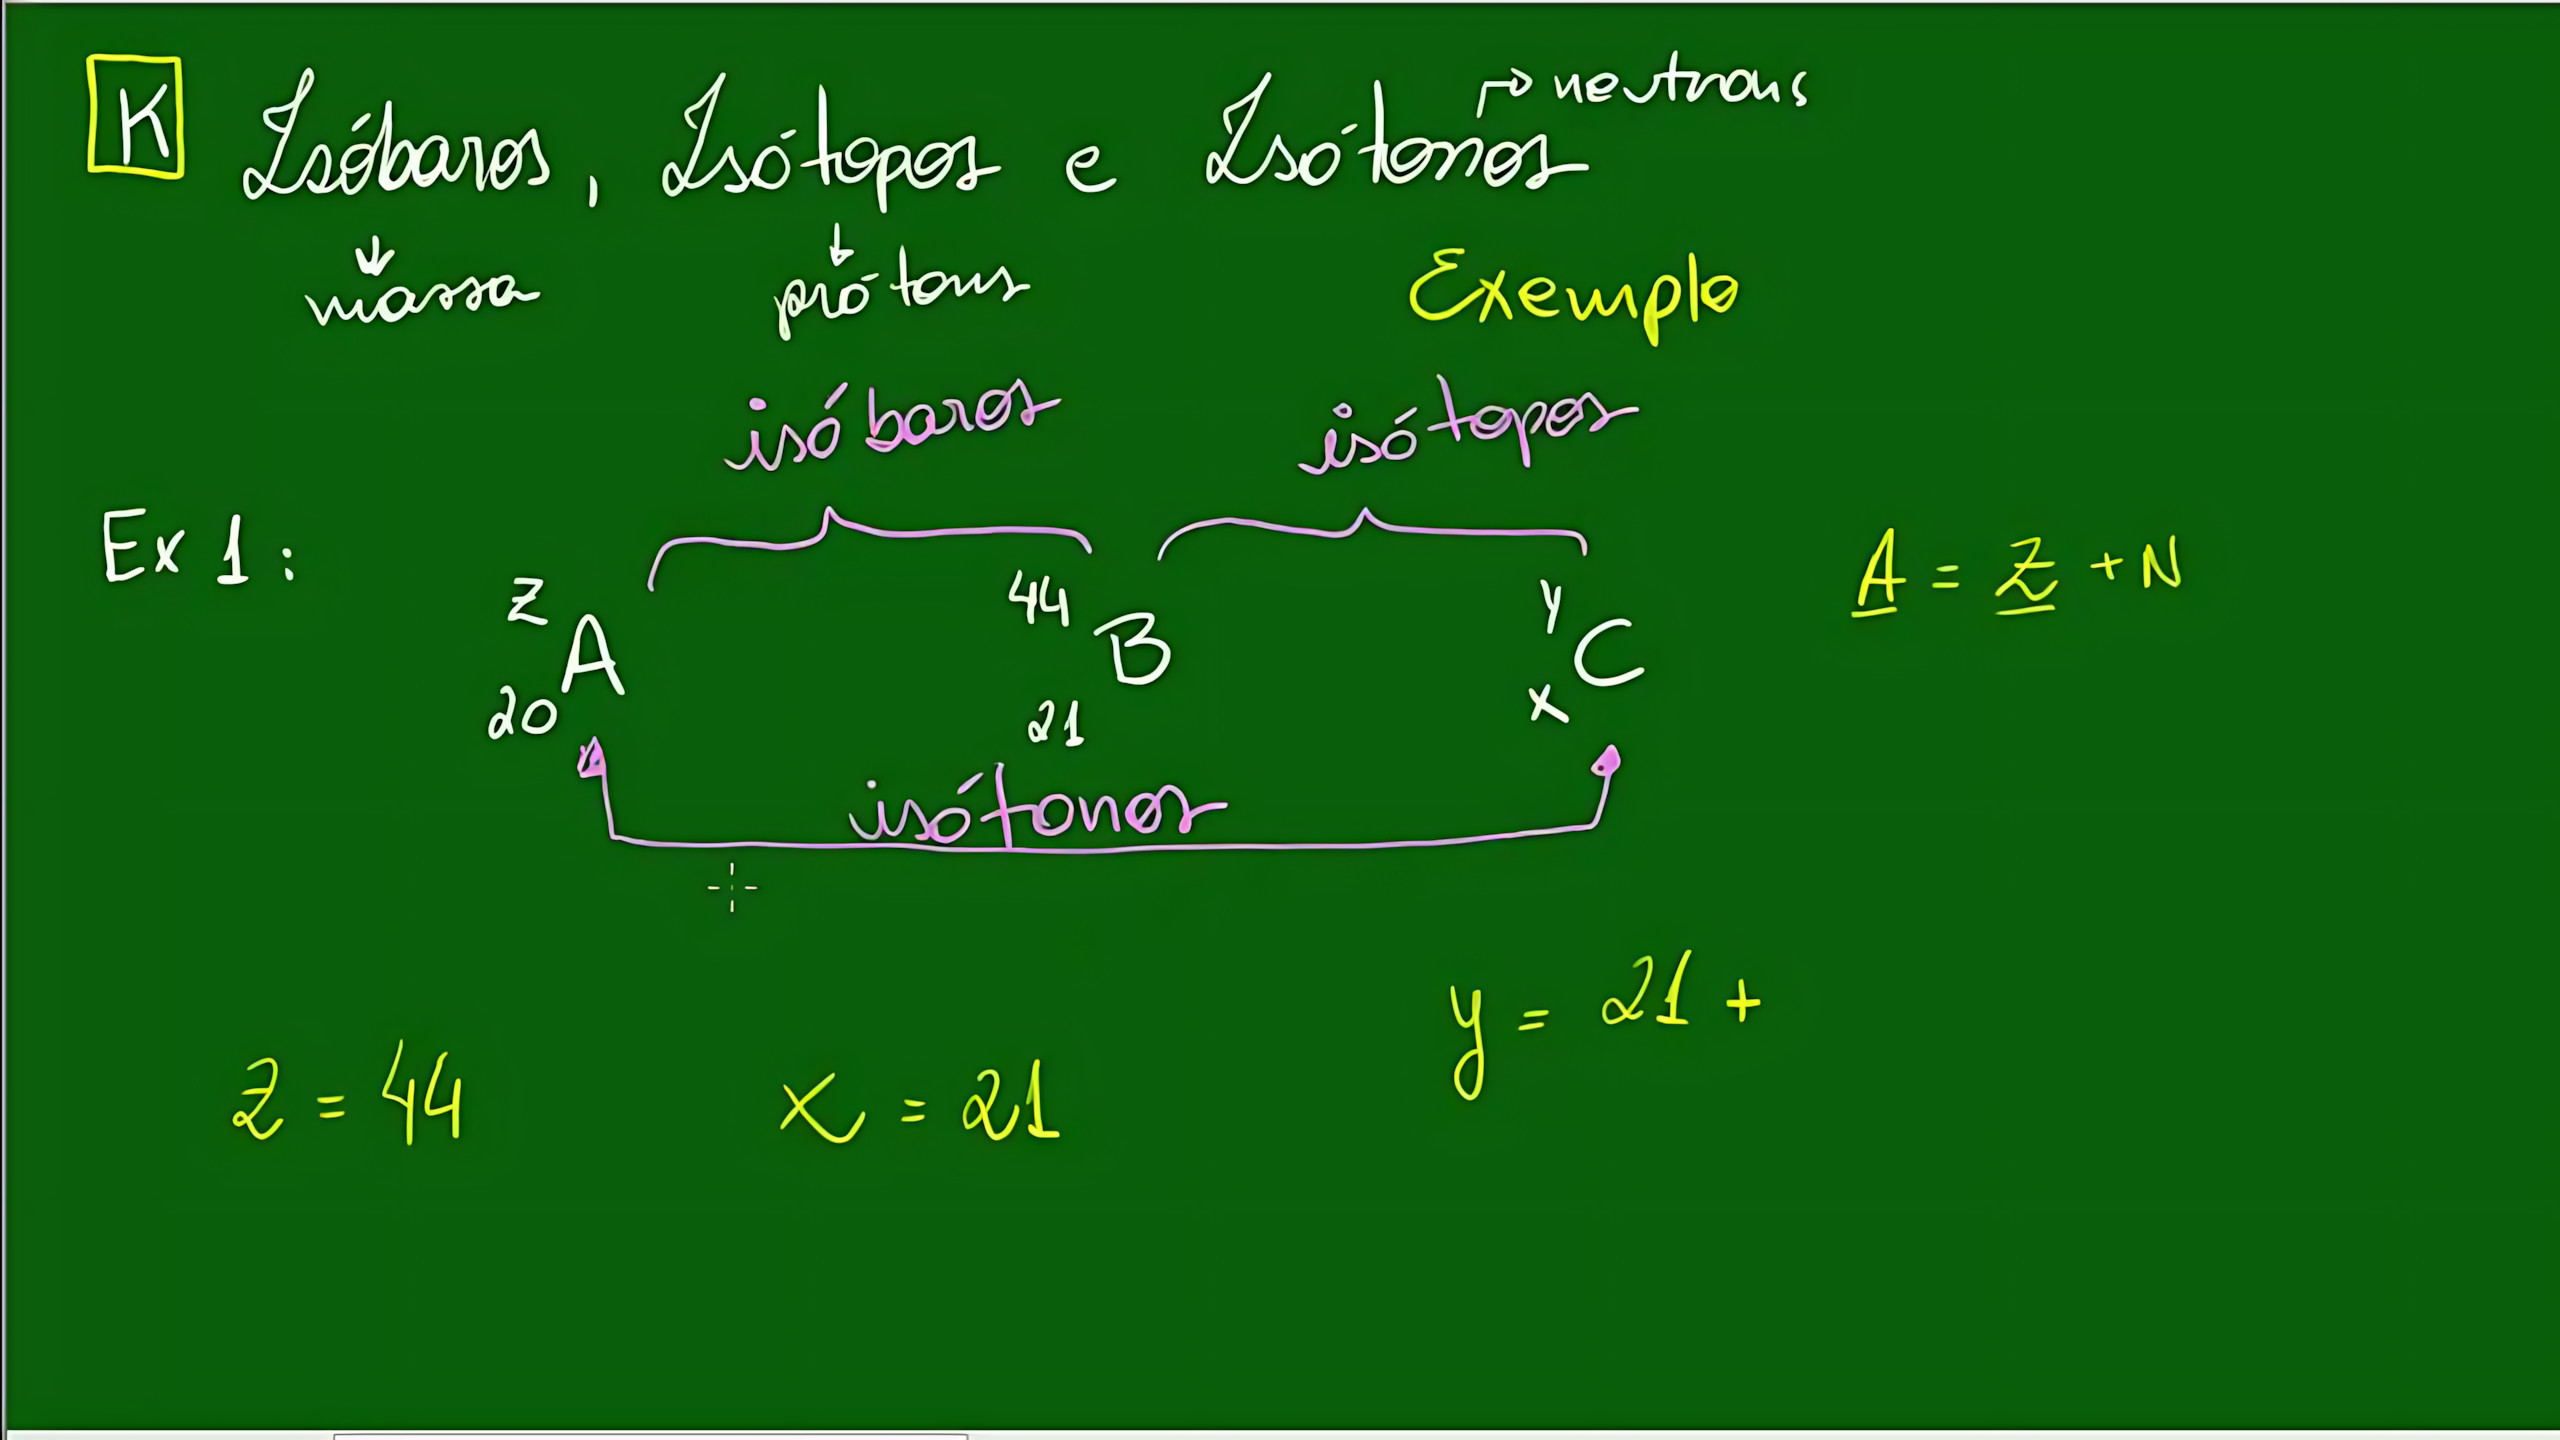 K Isóbaros, Isótopos e Isótonos → neutrons
↓ massa ↓ prótons Exemplo
isóbaros isótopos
Ex 1:
A = Z + N
z 44 y
A B C
20 21 x
isótonos
y = 21 +
z = 44 x = 21